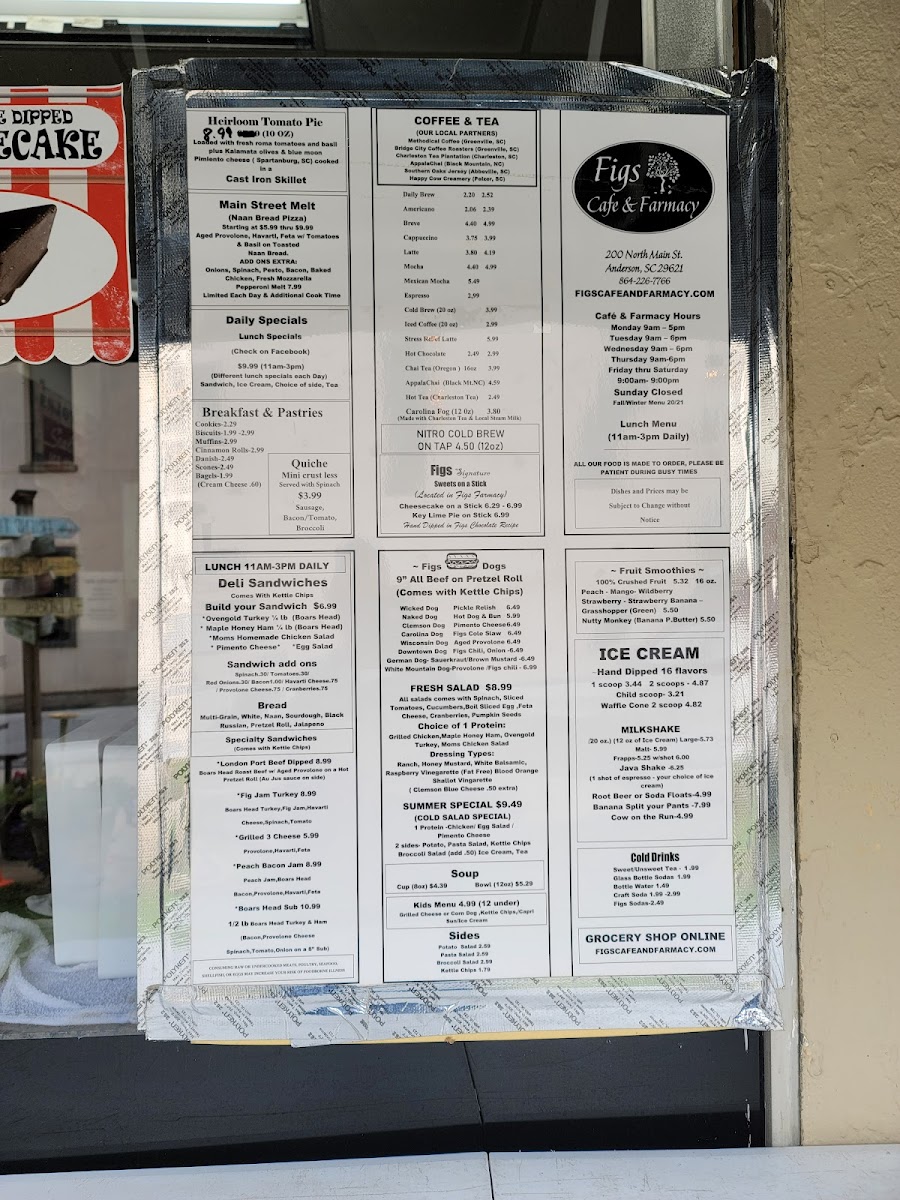 E DIPPED
ECAKE
Heirloom Tomato Pie
8.99 (10 OZ)
Loaded with fresh roma tomatoes and basil
plus Kalamata olives & blue moon
Pimiento cheese ( Spartanburg, SC) cooked
in a
Cast Iron Skillet
Main Street Melt
(Naan Bread Pizza)
Starting at $5.99 thru $9.99
Aged Provolone, Havarti, Feta w/ Tomatoes
& Basil on Toasted
Naan Bread.
ADD ONS EXTRA:
Onions, Spinach, Pesto, Bacon, Baked
Chicken, Fresh Mozzarella
Pepperoni Melt 7.99
Limited Each Day & Additional Cook Time
Daily Specials
Lunch Specials
(Check on Facebook)
$9.99 (11am-3pm)
(Different lunch specials each Day)
Sandwich, Ice Cream, Choice of side, Tea
Breakfast & Pastries
Cookies-2.29
Biscuits-1.99 -2.99
Muffins-2.99
Cinnamon Rolls-2.99
Danish-2.49
Scones-2.49
Bagels-1.99
(Cream Cheese .60)
Quiche
Mini crust less
Served with Spinach
$3.99
Sausage,
Bacon/Tomato,
Broccoli
COFFEE & TEA
(OUR LOCAL PARTNERS)
Methodical Coffee (Greenville, SC)
Bridge City Coffee Roasters (Greenville, SC)
Charleston Tea Plantation (Charleston, SC)
AppalaChai (Black Mountain, NC)
Southern Oaks Jersey (Abbeville, SC)
Happy Cow Creamery (Pelzer, SC)
Daily Brew 2.20 2.52
Americano 2.06 2.39
Breve 4.40 4.99
Cappuccino 3.75 3.99
Latte 3.80 4.19
Mocha 4.40 4.99
Mexican Mocha 5.49
Espresso 2.99
Cold Brew (20 oz) 3.99
Iced Coffee (20 oz) 2.99
Stress Relief Latte 5.99
Hot Chocolate 2.49 2.99
Chai Tea (Oregon ) 16oz 3.99
AppalaChai (Black Mt.NC) 4.59
Hot Tea (Charleston Tea) 2.49
Carolina Fog (12 0z) 3.80
(Made with Charleston Tea & Local Steam Milk)
NITRO COLD BREW
ON TAP 4.50 (12oz)
Figs The Signature
Sweets on a Stick
(Located in Figs Farmacy)
Cheesecake on a Stick 6.29 - 6.99
Key Lime Pie on Stick 6.99
Hand Dipped in Figs Chocolate Recipe
Figs
Cafe & Farmacy
200 North Main St.
Anderson, SC 29621
864-226-7766
FIGSCAFEANDFARMACY.COM
Café & Farmacy Hours
Monday 9am – 5pm
Tuesday 9am – 6pm
Wednesday 9am – 6pm
Thursday 9am-6pm
Friday thru Saturday
9:00am- 9:00pm
Sunday Closed
Fall/Winter Menu 20/21
Lunch Menu
(11am-3pm Daily)
ALL OUR FOOD IS MADE TO ORDER, PLEASE BE
PATIENT DURING BUSY TIMES
Dishes and Prices may be
Subject to Change without
Notice
LUNCH 11AM-3PM DAILY
Deli Sandwiches
Comes With Kettle Chips
Build your Sandwich $6.99
*Ovengold Turkey ¼ lb (Boars Head)
* Maple Honey Ham ¼ lb (Boars Head)
*Moms Homemade Chicken Salad
* Pimento Cheese* *Egg Salad
Sandwich add ons
Spinach.30/ Tomatoes.30/
Red Onions.30/ Bacon1.00/ Havarti Cheese.75
/ Provolone Cheese.75 / Cranberries.75
Bread
Multi-Grain, White, Naan, Sourdough, Black
Russian, Pretzel Roll, Jalapeno
Specialty Sandwiches
(Comes with Kettle Chips)
*London Port Beef Dipped 8.99
Boars Head Roast Beef w/ Aged Provolone on a Hot
Pretzel Roll (Au Jus sauce on side)
*Fig Jam Turkey 8.99
Boars Head Turkey,Fig Jam,Havarti
Cheese,Spinach,Tomato
*Grilled 3 Cheese 5.99
Provolone,Havarti,Feta
*Peach Bacon Jam 8.99
Peach Jam,Boars Head
Bacon,Provolone,Havarti,Feta
*Boars Head Sub 10.99
1/2 lb Boars Head Turkey & Ham
(Bacon,Provolone Cheese
Spinach,Tomato,Onion on a 8" Sub)
CONSUMING RAW OR UNDERCOOKED MEATS, POULTRY, SEAFOOD,
SHELLFISH, OR EGGS MAY INCREASE YOUR RISK OF FOODBORNE ILLNESS
~ Figs Dogs
9" All Beef on Pretzel Roll
(Comes with Kettle Chips)
Wicked Dog Pickle Relish 6.49
Naked Dog Hot Dog & Bun 5.99
Clemson Dog Pimento Cheese6.49
Carolina Dog Figs Cole Slaw 6.49
Wisconsin Dog Aged Provolone 6.49
Downtown Dog Figs Chili, Onion -6.49
German Dog- Sauerkraut/Brown Mustard -6.49
White Mountain Dog-Provolone /Figs chili - 6.99
FRESH SALAD $8.99
All salads comes with Spinach, Sliced
Tomatoes, Cucumbers,Boil Sliced Egg ,Feta
Cheese, Cranberries, Pumpkin Seeds
Choice of 1 Protein:
Grilled Chicken,Maple Honey Ham, Ovengold
Turkey, Moms Chicken Salad
Dressing Types:
Ranch, Honey Mustard, White Balsamic,
Raspberry Vinegarette (Fat Free) Blood Orange
Shallot Vingarette
( Clemson Blue Cheese .50 extra)
SUMMER SPECIAL $9.49
(COLD SALAD SPECIAL)
1 Protein -Chicken/ Egg Salad /
Pimento Cheese
2 sides- Potato, Pasta Salad, Kettle Chips
Broccoli Salad (add .50) Ice Cream, Tea
Soup
Cup (8oz) $4.39 Bowl (12oz) $5.29
Kids Menu 4.99 (12 under)
Grilled Cheese or Corn Dog ,Kettle Chips/Capri
Sun/Ice Cream
Sides
Potato Salad 2.59
Pasta Salad 2.59
Broccoli Salad 2.99
Kettle Chips 1.79
~ Fruit Smoothies ~
100% Crushed Fruit 5.32 16 oz.
Peach - Mango- Wildberry
Strawberry - Strawberry Banana –
Grasshopper (Green) 5.50
Nutty Monkey (Banana P.Butter) 5.50
ICE CREAM
Hand Dipped 16 flavors
1 scoop 3.44 2 scoops - 4.87
Child scoop- 3.21
Waffle Cone 2 scoop 4.82
MILKSHAKE
(20 oz.) (12 oz of Ice Cream) Large-5.73
Malt- 5.99
Frapps-5.25 w/shot 6.00
Java Shake -6.25
(1 shot of espresso - your choice of ice
cream)
Root Beer or Soda Floats-4.99
Banana Split your Pants -7.99
Cow on the Run-4.99
Cold Drinks
Sweet/Unsweet Tea - 1.99
Glass Bottle Sodas 1.99
Bottle Water 1.49
Craft Soda 1.99 -2.99
Figs Sodas-2.49
GROCERY SHOP ONLINE
FIGSCAFEANDFARMACY.COM